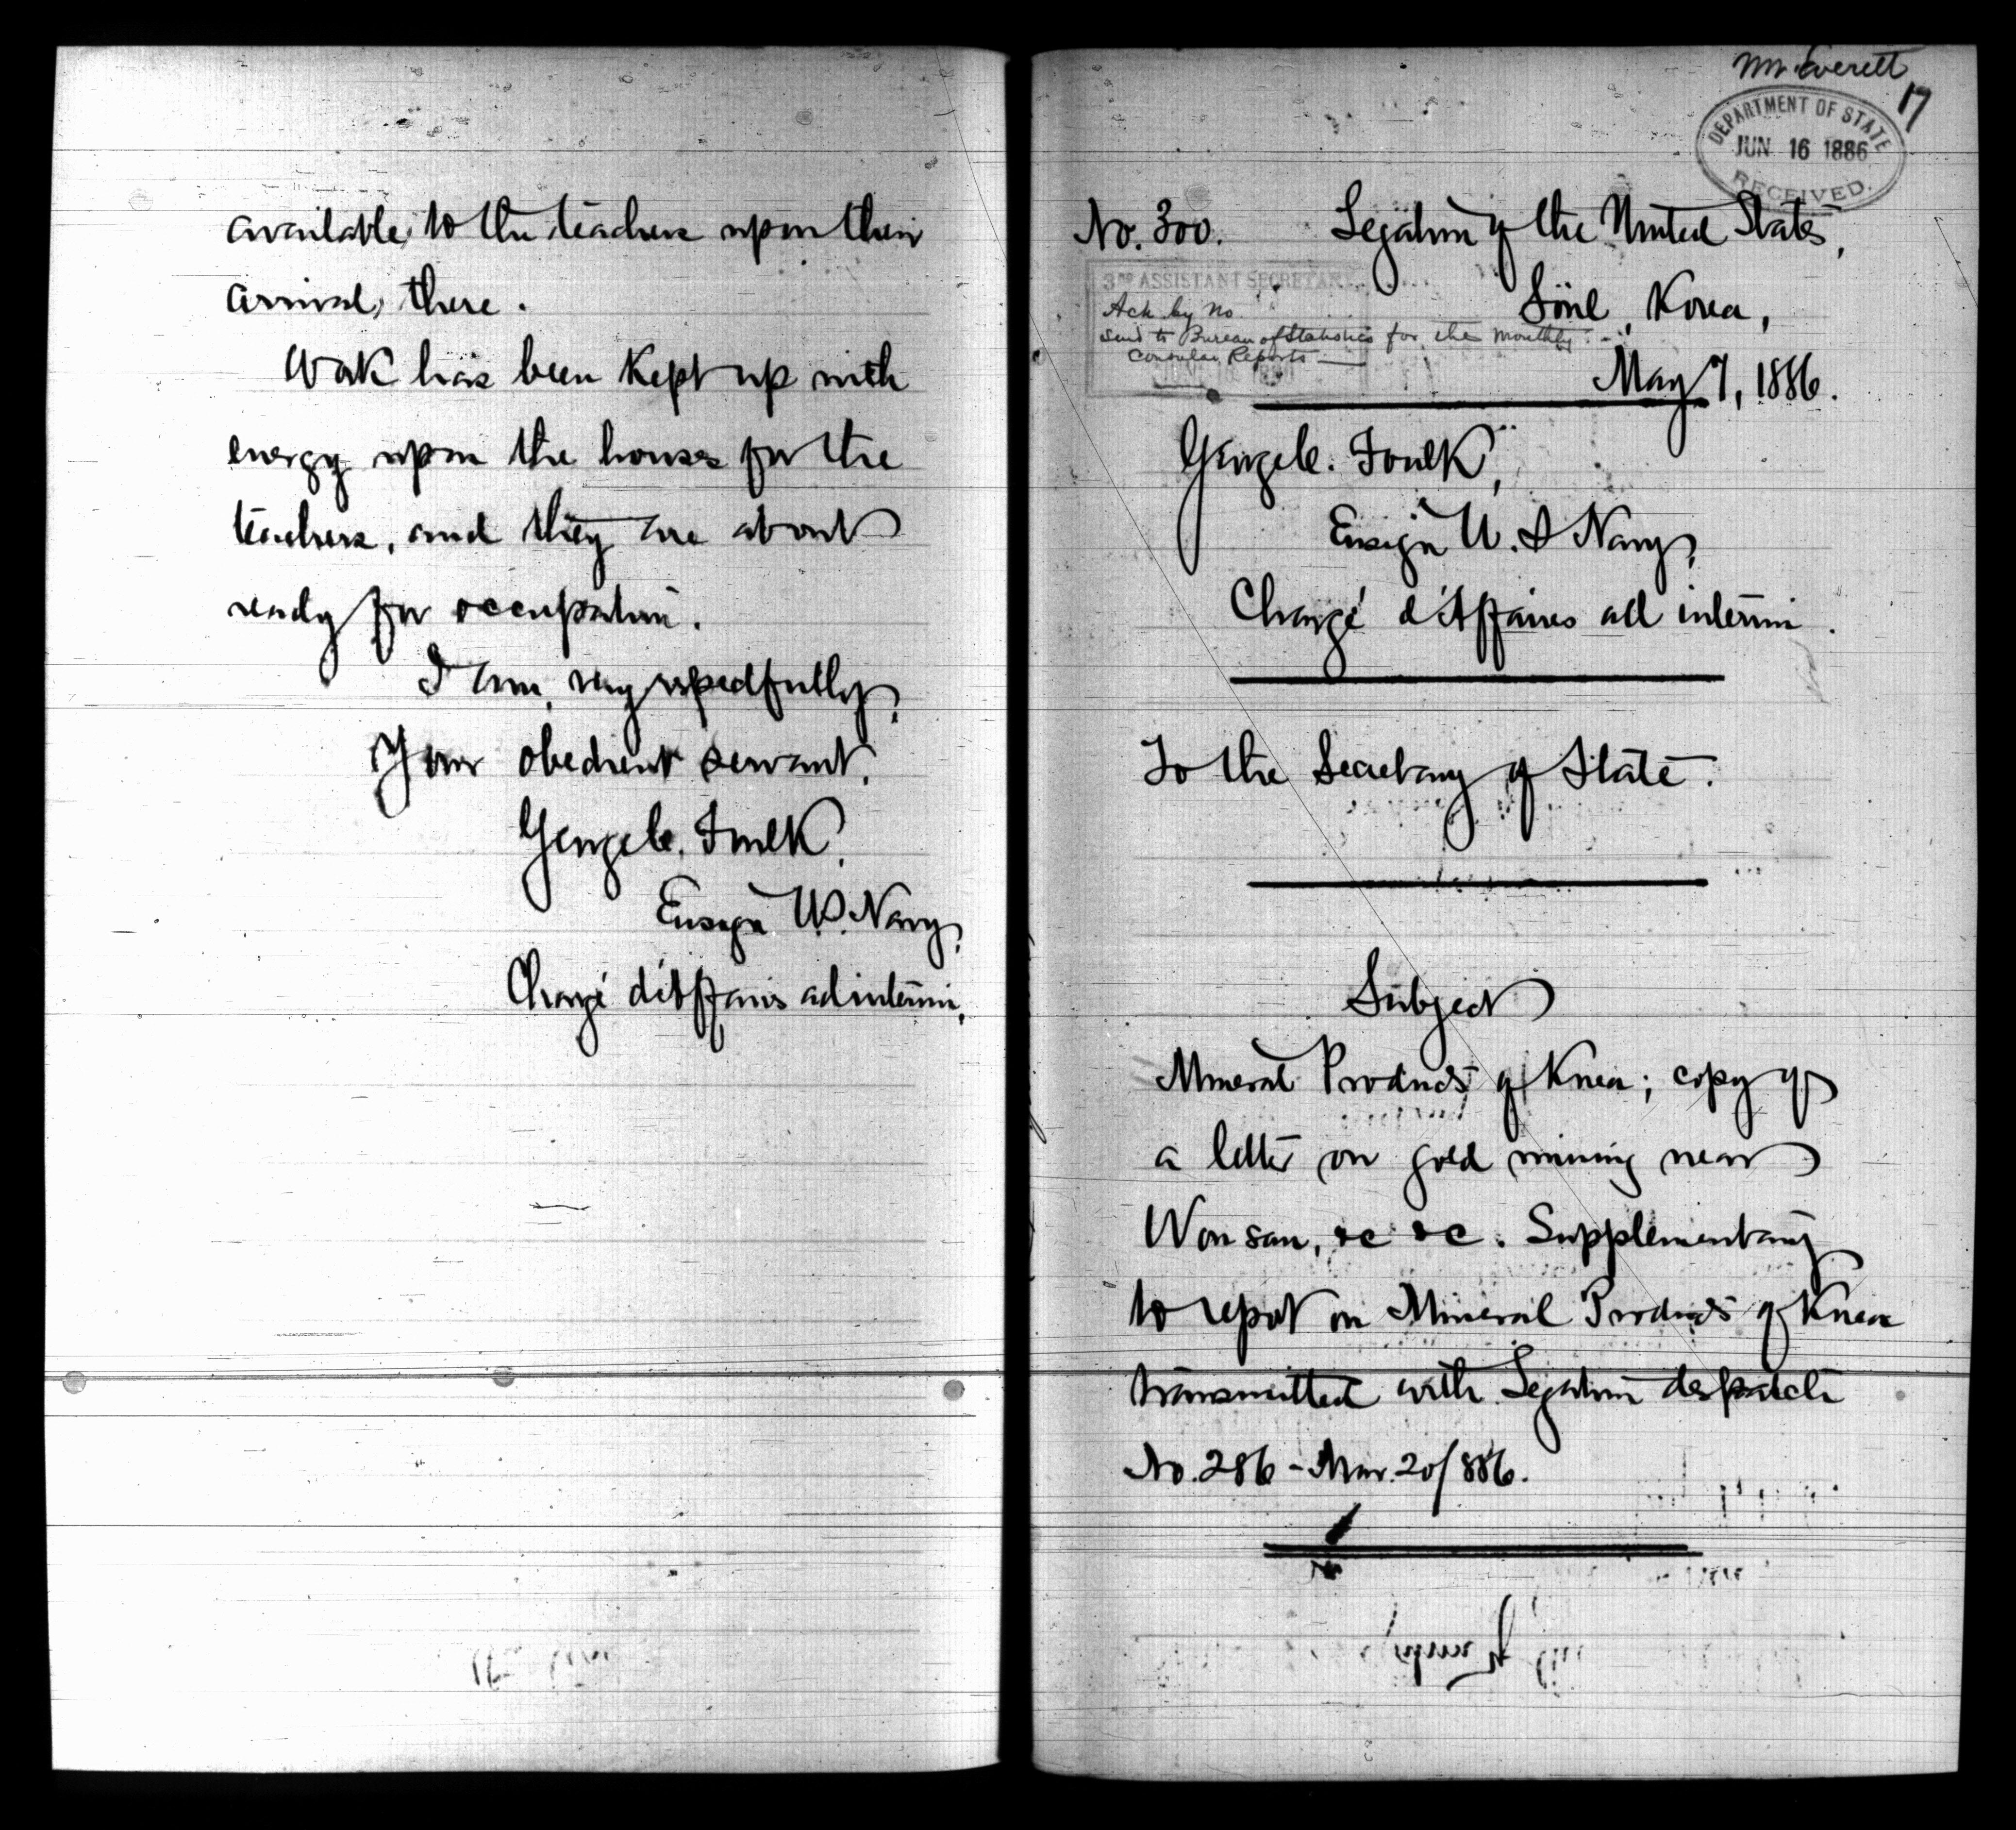 available to the teachers upon their
arrival there.
Work has been kept up with
energy upon the houses for the
teachers, and they are about
ready for occupation.
I am, very respectfully,
Your obedient servant,
George C. Foulk,
Ensign U.S. Navy,
Chargé d'Affaires ad interim.
Mr. Everett
17
DEPARTMENT OF STATE
JUN 16 1886
RECEIVED.
No. 300. Legation of the United States,
Söul, Korea,
3RD ASSISTANT SECRETARY
Ack by No
send to Bureau of Statistics for the monthly
Consular Reports —
May 7, 1886.
George C. Foulk,
Ensign U.S. Navy,
Chargé d'Affaires ad interim.
To the Secretary of State.
Subject
Mineral Products of Korea; copy of
a letter on gold mining near
Wonsan, &c &c. Supplementary
to report on Mineral Products of Korea
transmitted with Legation despatch
No. 286 - Mar. 20/886.